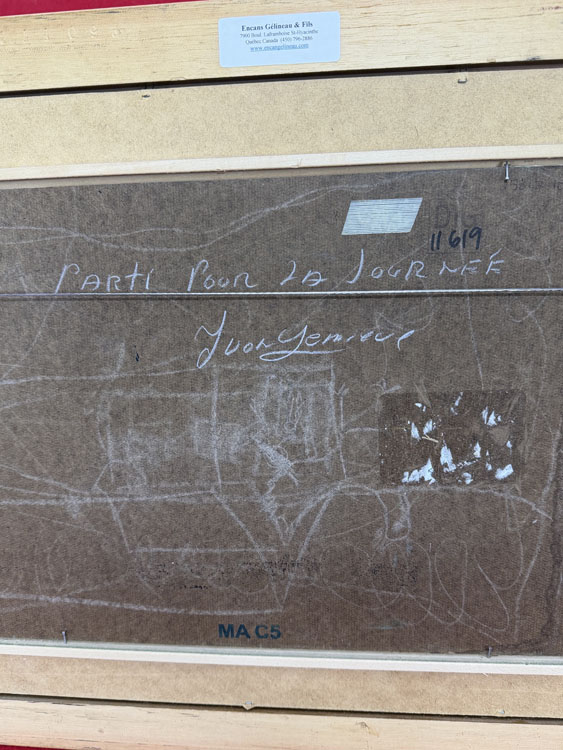 Encans Gélineau & Fils
7900 Boul. Laframboise St-Hyacinthe
Québec Canada (450) 796-2886
www.encangelineau.com
11619
PARTI POUR LA JOURNÉE
Yvon
MA C5